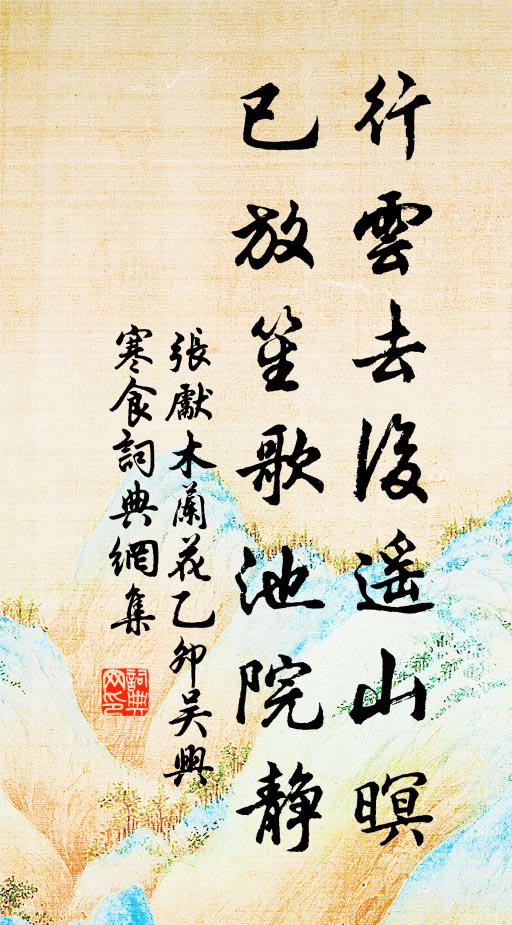 行雲去後遥山暝
已放笙歌池院静
張獻木蘭花乙卯吴興
寒食詞典網集
詞典
网印